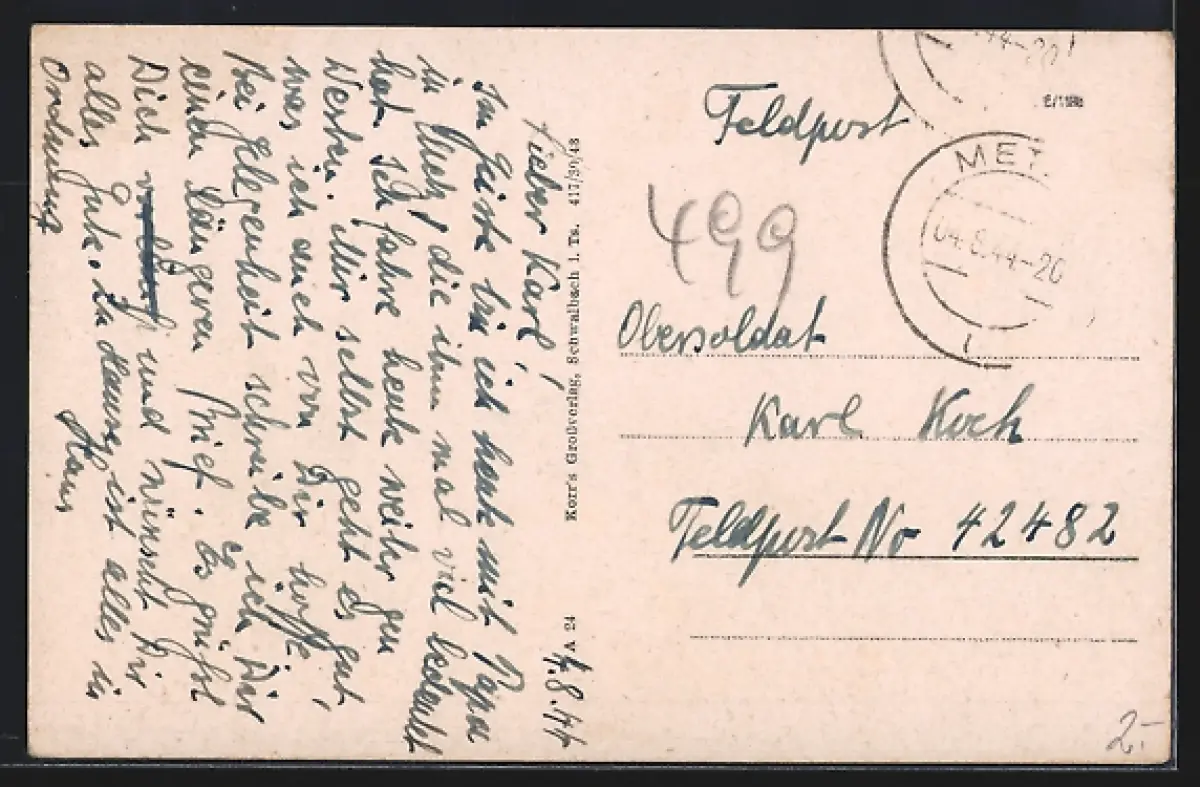 4.8.44
Lieber Karl!
Im Geiste bin ich heute mit Papa
in Metz, die ihm mal viel bedeutet
hat. Ich fahre heute weiter gen
Westen. Mir selbst geht es gut,
was ich auch von Dir hoffe,
Bei Gelegenheit schreibe ich Dir
einen längeren Brief. Es grüßt
Dich und wünscht Dir
alles Gute. Zu Hause ist alles in
Ordnung
Hans
Korr's Großverlag, Schwalbach i. Ts. 417/39/43
A 24
Feldpost
499
Obersoldat
Karl Koch
Feldpost No 42482
44-20
MET
04.8.44-20
2.-